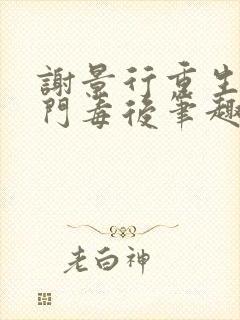 謝景行重生
門毒後筆趣
老白神